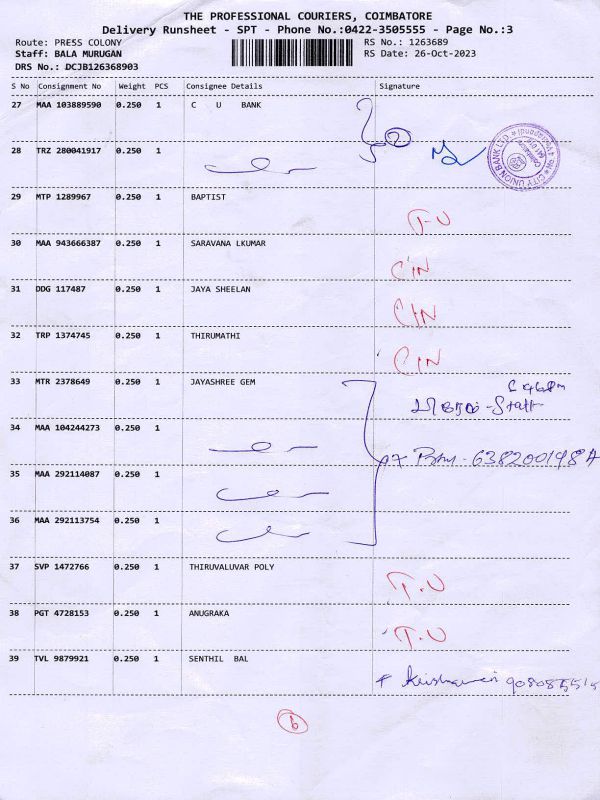 THE PROFESSIONAL COURIERS, COIMBATORE
Delivery Runsheet - SPT - Phone No.:0422-3505555 - Page No.:3
Route: PRESS COLONY RS No.: 1263689
Staff: BALA MURUGAN RS Date: 26-Oct-2023
DRS No.: DCJB126368903
S No Consignment No Weight PCS Consignee Details Signature
27 MAA 103889590 0.250 1 C U BANK
2
CITY UNION BANK LTD.
28 TRZ 280041917 0.250 1
29 MTP 1289967 0.250 1 BAPTIST
T-U
30 MAA 943666387 0.250 1 SARAVANA LKUMAR
CIN
31 DDG 117487 0.250 1 JAYA SHEELAN
CIN
32 TRP 1374745 0.250 1 THIRUMATHI
CIN
33 MTR 2378649 0.250 1 JAYASHREE GEM
- Staff
34 MAA 104244273 0.250 1
35 MAA 292114087 0.250 1
36 MAA 292113754 0.250 1
37 SVP 1472766 0.250 1 THIRUVALUVAR POLY
T.U
38 PGT 4728153 0.250 1 ANUGRAKA
T.U
39 TVL 9879921 0.250 1 SENTHIL BAL